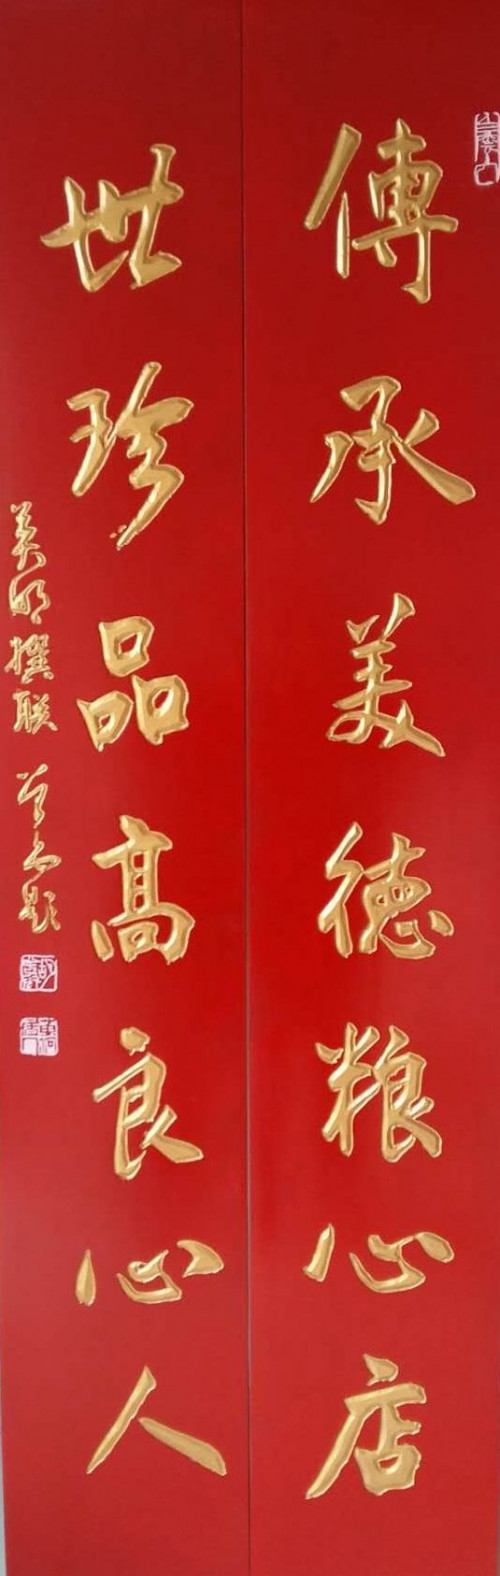 傳承美德粮心店
世珍品高良心人
美明撰联